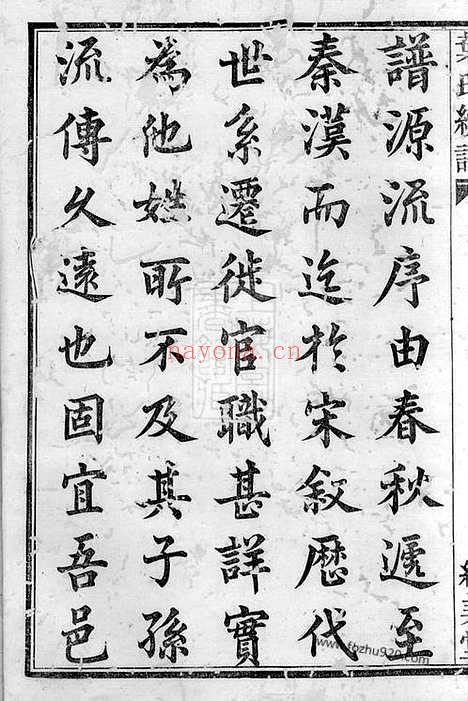 譜源流序由春秋遞至
秦漢而迄於宋叙歷代
世系遷徙官職甚詳實
為他姓所不及其子孫
流傳久遠也固宜吾邑
nayona.cn
www.fbzhu920.com